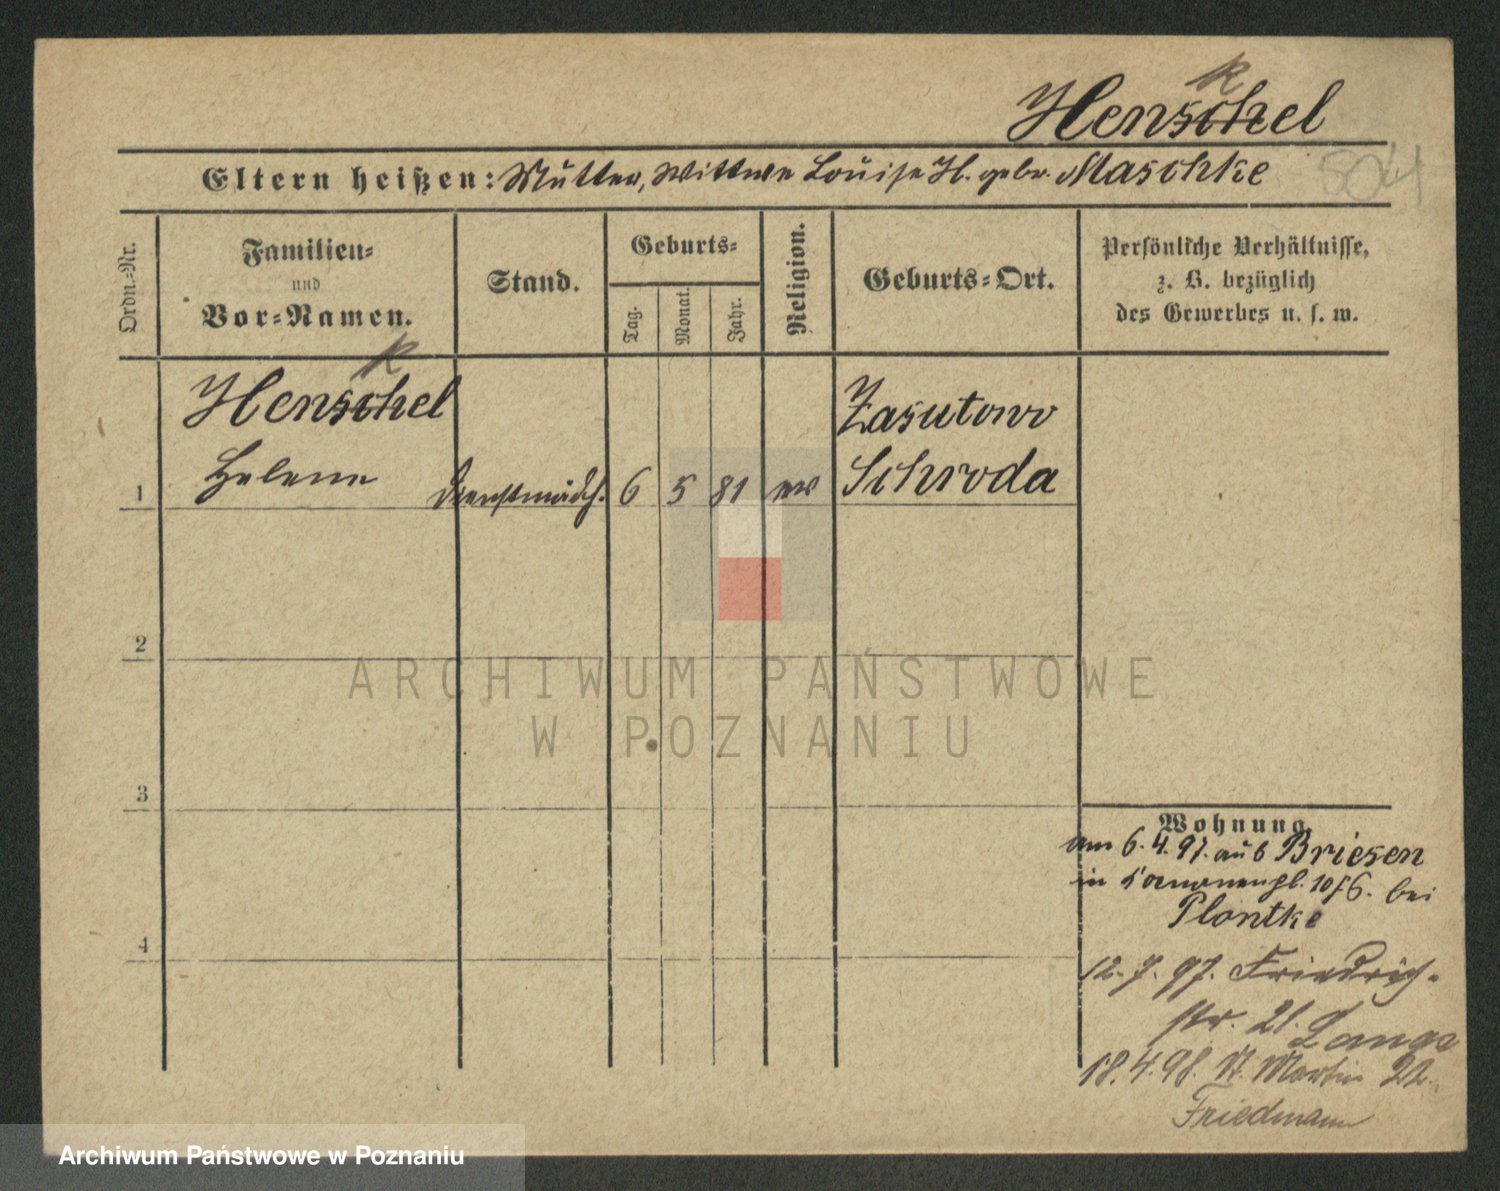 k
Henschel
Eltern heißen: Mutter, Wittwe Louise H. gebr. Maschke
504
Ordn.-Nr.
Familien-
und
Vor-Namen.
Stand.
Geburts-
Tag.
Monat.
Jahr.
Religion.
Geburts-Ort.
Persönliche Verhältnisse,
z. B. bezüglich
des Gewerbes u. s. w.
k
Henschel
Helene
1
Dienstmädch.
6
5
81
ev
Zasutowo
Schroda
2
3
4
Wohnung.
am 6.4.97. aus Briesen
in 10/6. bei
Plontke
12.7.97. Friedrich-
str. 21. Lange
18.4.98. St. Martin 22.
Friedmann
ARCHIWUM PAŃSTWOWE
W POZNANIU
Archiwum Państwowe w Poznaniu